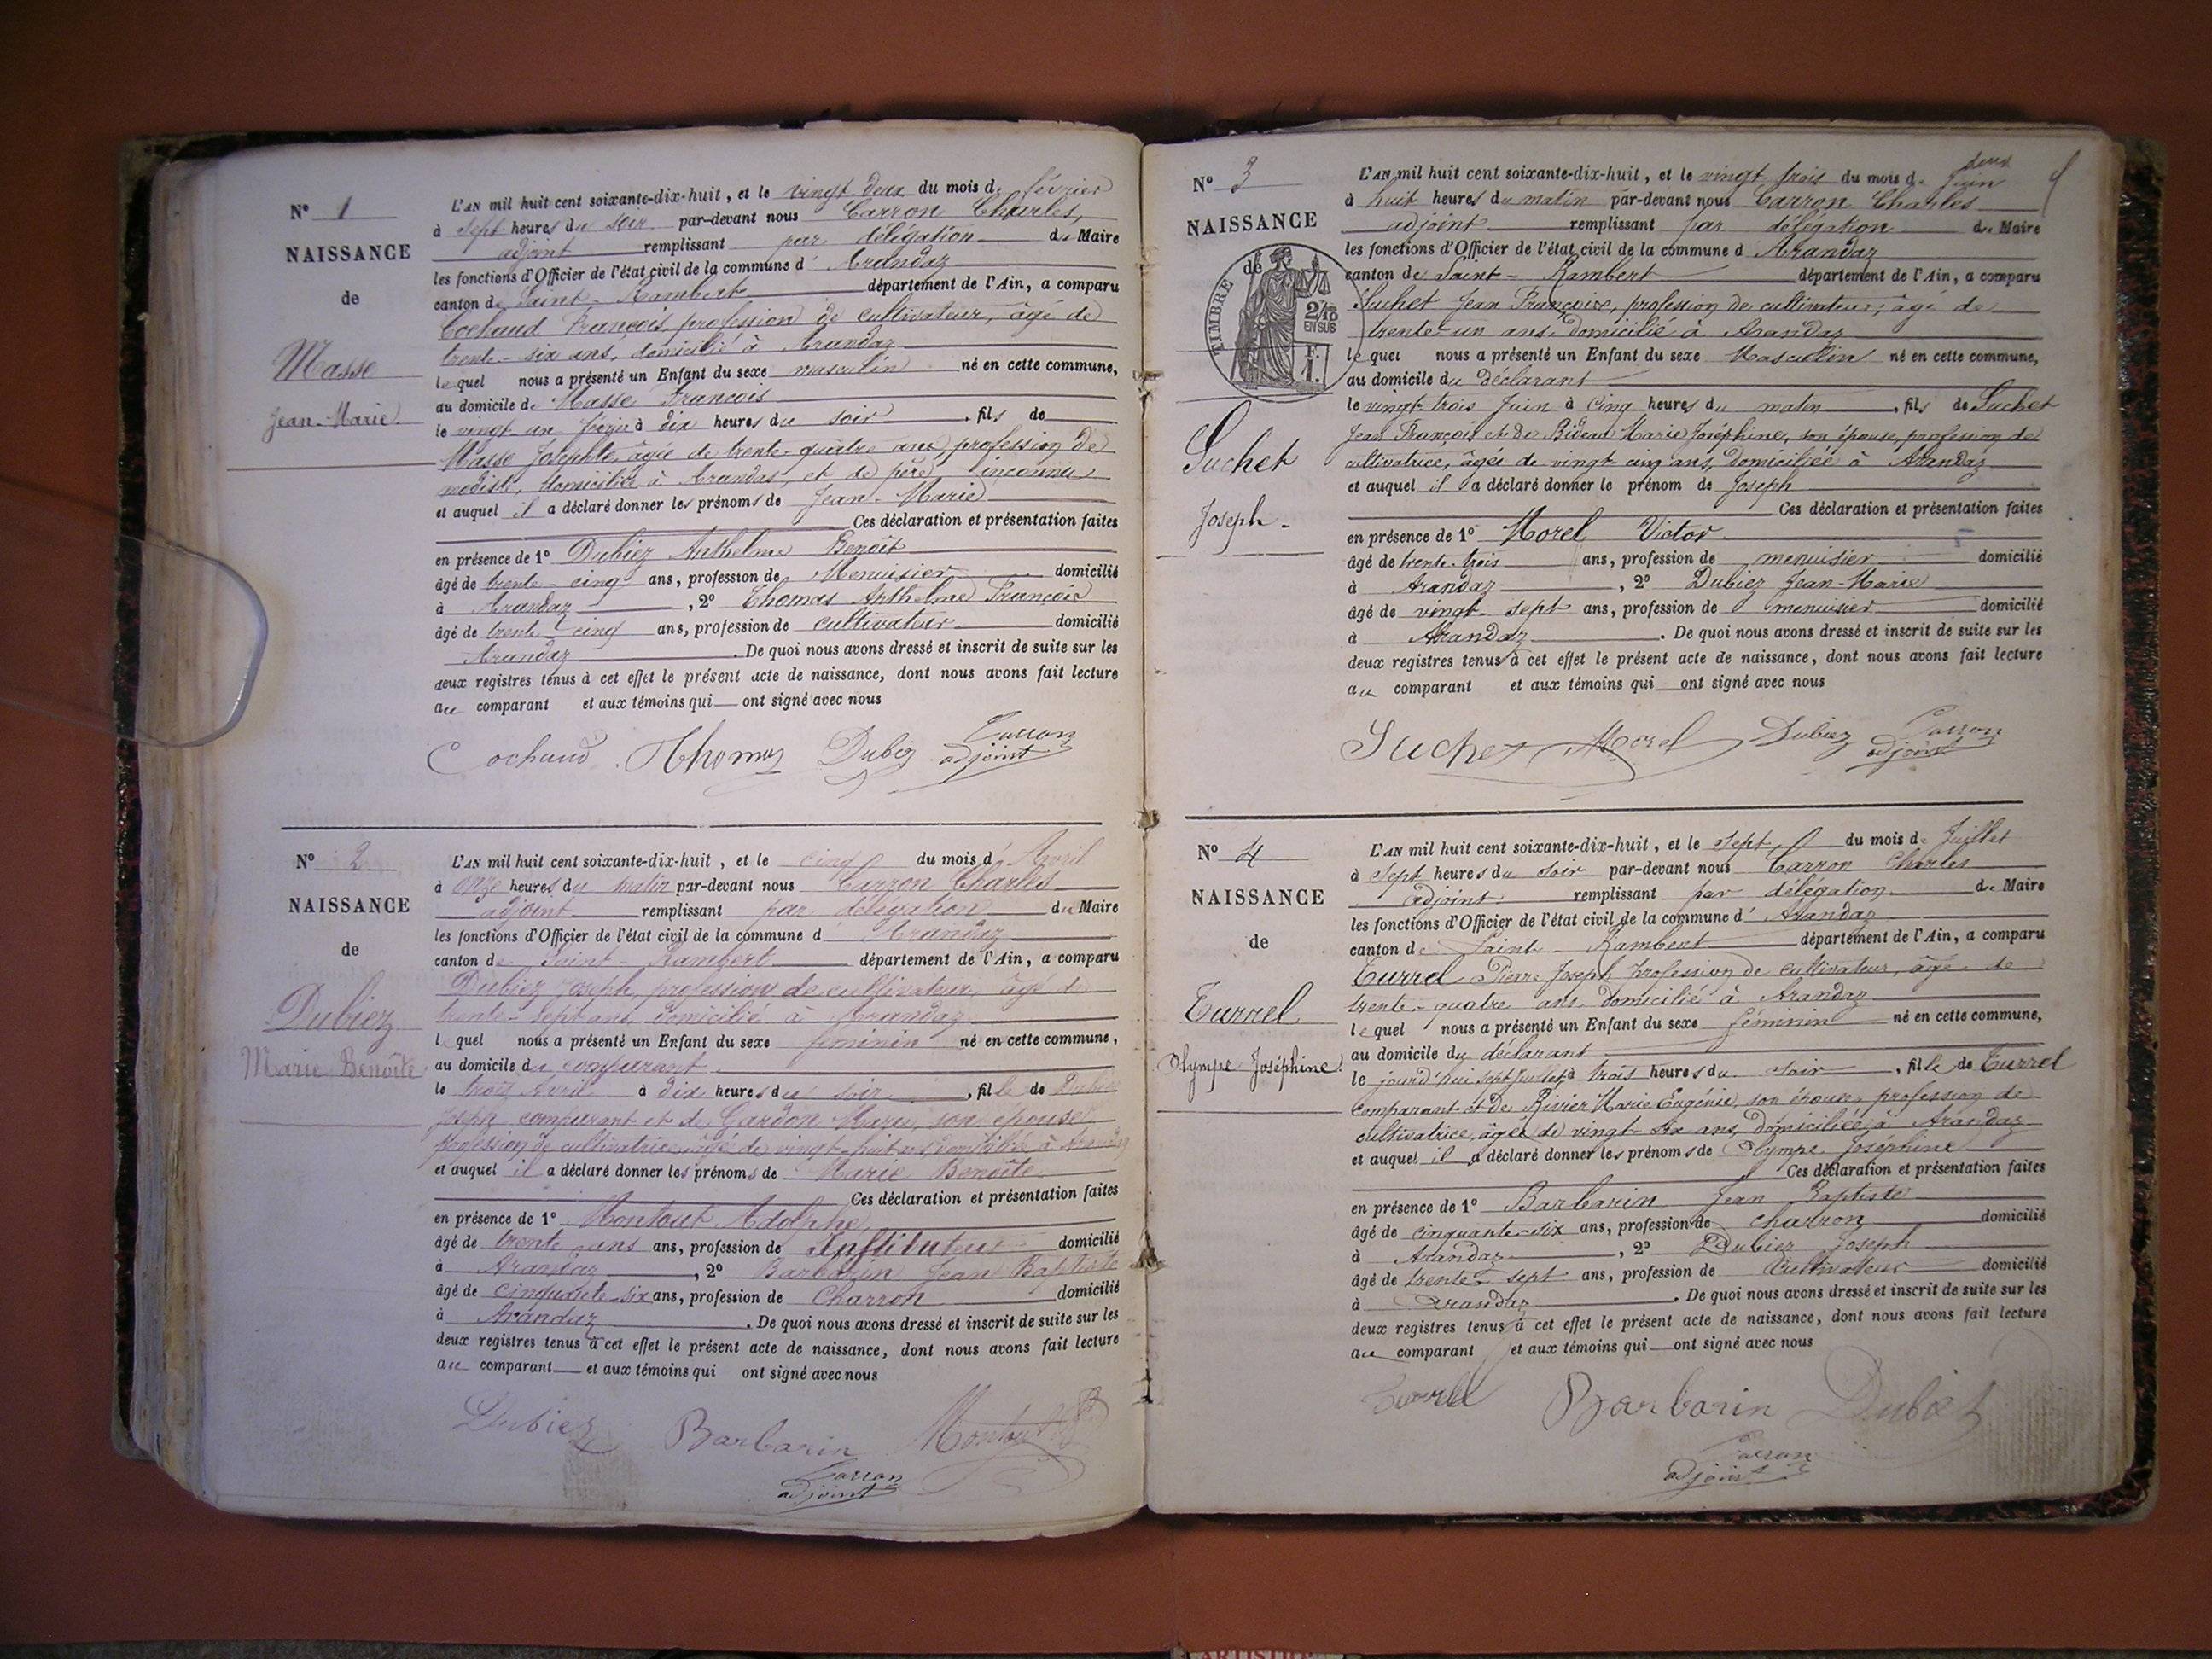 N° 1
NAISSANCE
de
Masse
Jean-Marie
L'AN mil huit cent soixante-dix-huit, et le vingt deux du mois de février
à sept heures du soir par-devant nous Carron Charles,
adjoint remplissant par délégation du Maire
les fonctions d'Officier de l'état civil de la commune d' Arandaz
canton de Saint-Rambert département de l'Ain, a comparu
Cochaud François, profession de cultivateur, âgé de
trente-six ans, domicilié à Arandaz
lequel nous a présenté un Enfant du sexe masculin né en cette commune,
au domicile de Masse François
le vingt-un février à dix heures du soir, fils de
Masse Josephte, âgée de trente-quatre ans, profession de
modiste, domiciliée à Arandas, et de père inconnu
et auquel il a déclaré donner les prénoms de Jean-Marie
Ces déclaration et présentation faites
en présence de 1° Dubiez Anthelme Benoît
âgé de trente-cinq ans, profession de Menuisier domicilié
à Arandaz, 2° Thomas Anthelme François
âgé de trente-cinq ans, profession de cultivateur domicilié
Arandaz. De quoi nous avons dressé et inscrit de suite sur les
deux registres tenus à cet effet le présent acte de naissance, dont nous avons fait lecture
au comparant et aux témoins qui ont signé avec nous
Cochaud Thomas Dubiez Carron
adjoint
N° 2
NAISSANCE
de
Dubiez
Marie Benoîte
L'AN mil huit cent soixante-dix-huit, et le cinq du mois d' Avril
à onze heures du matin par-devant nous Carron Charles
adjoint remplissant par délégation du Maire
les fonctions d'Officier de l'état civil de la commune d' Arandaz
canton de Saint-Rambert département de l'Ain, a comparu
Dubiez Joseph, profession de cultivateur, âgé de
trente-sept ans, domicilié à Arandaz
lequel nous a présenté un Enfant du sexe féminin né en cette commune,
au domicile du comparant
le trois Avril à dix heures du soir, fille de Dubiez
Joseph comparant et de Gardon Marie, son épouse
profession de cultivatrice, âgé de vingt-huit ans domiciliée à Arandaz
et auquel il a déclaré donner les prénoms de Marie Benoîte
Ces déclaration et présentation faites
en présence de 1° Montout Adolphe,
âgé de trente ans ans, profession de Instituteur domicilié
à Arandaz, 2° Barbarin Jean Baptiste
âgé de cinquante-six ans, profession de Charron domicilié
à Arandaz. De quoi nous avons dressé et inscrit de suite sur les
deux registres tenus à cet effet le présent acte de naissance, dont nous avons fait lecture
au comparant et aux témoins qui ont signé avec nous
Dubiez Barbarin Montout
Carron
adjoint
N° 3
NAISSANCE
de
TIMBRE
2/10
EN SUS
F.
1.
Suchet
Joseph
deux
L'AN mil huit cent soixante-dix-huit, et le vingt trois du mois de Juin
à huit heures du matin par-devant nous Carron Charles
adjoint remplissant par délégation du Maire
les fonctions d'Officier de l'état civil de la commune d Arandaz
canton de Saint-Rambert département de l'Ain, a comparu
Suchet Jean Françoise, profession de cultivateur, âgé de
trente-un ans domicilié à Arandaz
lequel nous a présenté un Enfant du sexe Masculin né en cette commune,
au domicile du déclarant
le vingt-trois Juin à cinq heures du matin, fils de Suchet
Jean François et de Bideau Marie Joséphine, son épouse, profession de
cultivatrice, âgée de vingt-cinq ans, domiciliée à Arandaz
et auquel il a déclaré donner le prénom de Joseph
Ces déclaration et présentation faites
en présence de 1° Morel Victor
âgé de trente-trois ans, profession de menuisier domicilié
à Arandaz, 2° Dubiez Jean-Marie
âgé de vingt-sept ans, profession de menuisier domicilié
à Arandaz. De quoi nous avons dressé et inscrit de suite sur les
deux registres tenus à cet effet le présent acte de naissance, dont nous avons fait lecture
au comparant et aux témoins qui ont signé avec nous
Suchet Morel Dubiez Carron
adjoint
N° 4
NAISSANCE
de
Turrel
Olympe Joséphine
L'AN mil huit cent soixante-dix-huit, et le sept du mois de Juillet
à sept heures du soir par-devant nous Carron Charles
adjoint remplissant par délégation du Maire
les fonctions d'Officier de l'état civil de la commune d' Arandaz
canton de Saint-Rambert département de l'Ain, a comparu
Turrel Pierre Joseph profession de cultivateur, âgé de
trente-quatre ans domicilié à Arandaz
lequel nous a présenté un Enfant du sexe féminin né en cette commune,
au domicile du déclarant
le jourd'hui sept Juillet à trois heures du soir, fille de Turrel
comparant et de Rivier Marie Eugénie, son épouse, profession de
cultivatrice, âgée de vingt-six ans, domiciliée à Arandaz
et auquel il a déclaré donner les prénoms de Olympe Joséphine
Ces déclaration et présentation faites
en présence de 1° Barbarin Jean Baptiste
âgé de cinquante-six ans, profession de charron domicilié
à Arandaz, 2° Dubiez Joseph
âgé de trente-sept ans, profession de Cultivateur domicilié
à Arandaz. De quoi nous avons dressé et inscrit de suite sur les
deux registres tenus à cet effet le présent acte de naissance, dont nous avons fait lecture
au comparant et aux témoins qui ont signé avec nous
Turrel Barbarin Dubiez
Carron
adjoint